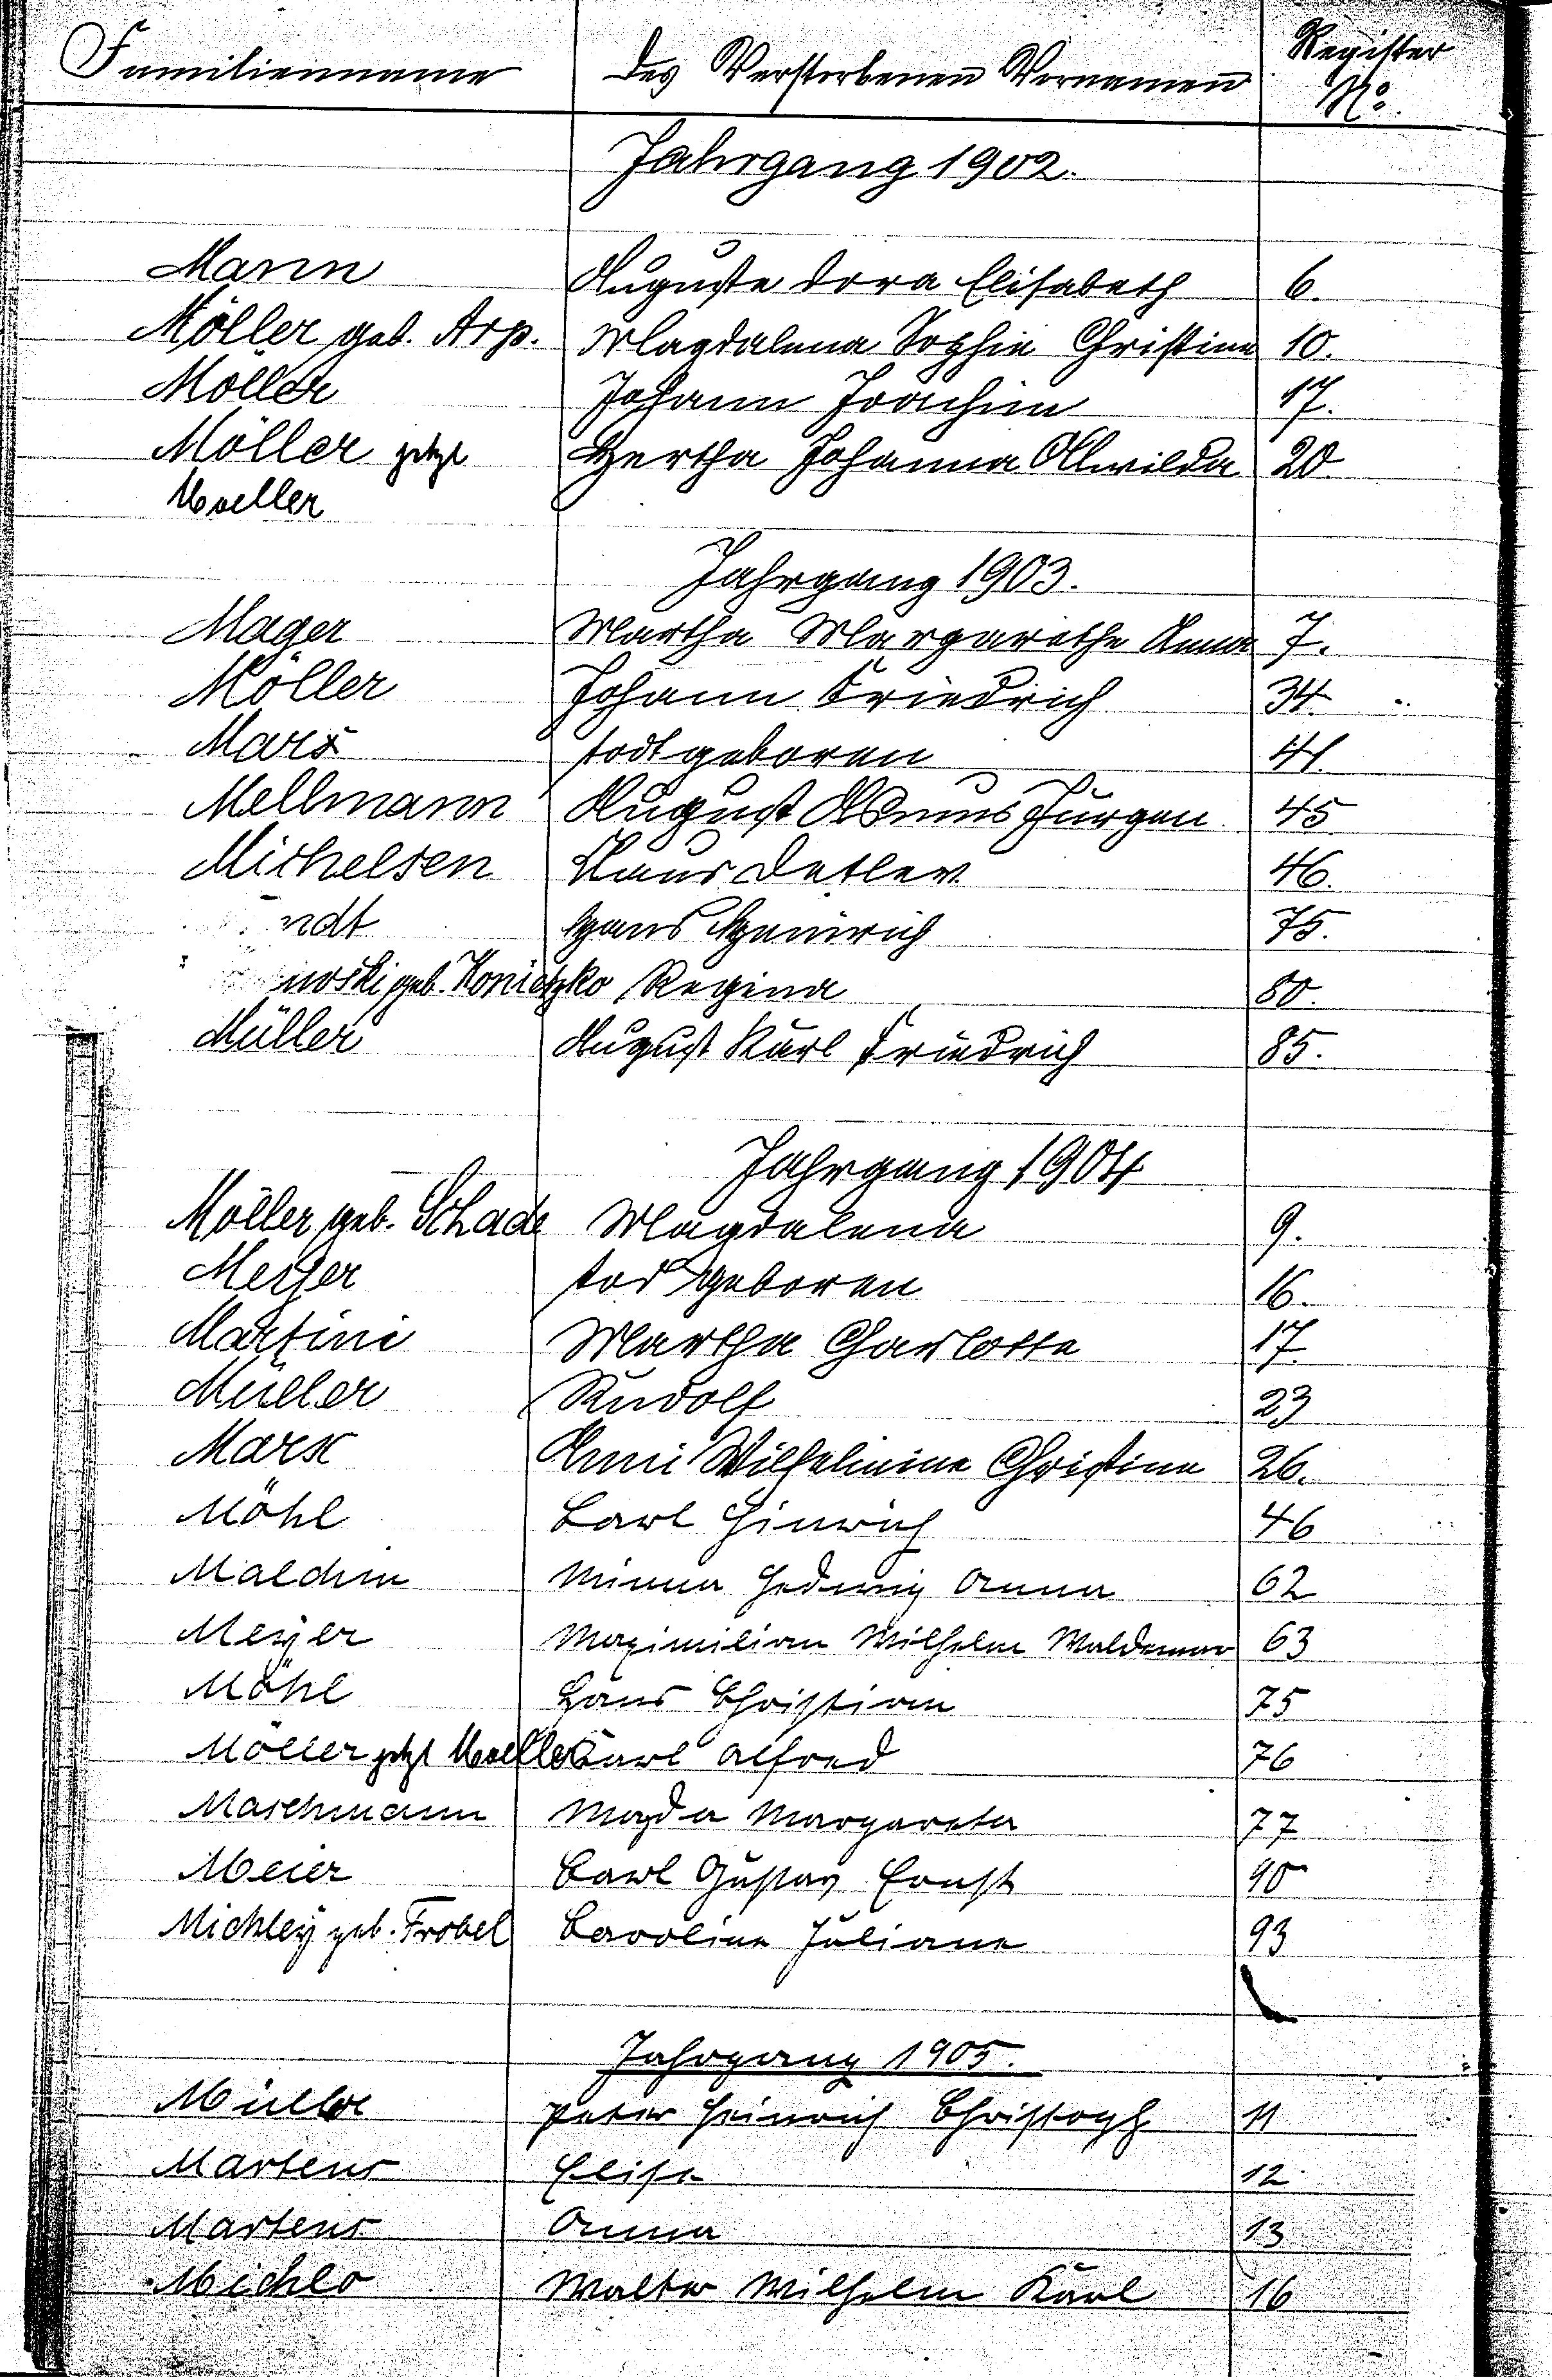 Familienname des Verstorbenen Vornamen Register No.
Jahrgang 1902.
Mann Auguste Dora Elisabeth 6.
Möller geb. Arp. Magdalena Sophie Christine 10.
Möller Johann Joachim 17.
Möller jetzt Hertha Johanna Alwilda 20
Moeller
Jahrgang 1903.
Mager Martha Margarethe Anna 7.
Möller Johann Friedrich 34.
Marx todtgeboren 41.
Mellmann August Asmus Jürgen 45
Michelsen Klaus Detlev 46.
ndt Hans Heinrich 75.
nowski geb. Konietzko Regina 80.
Müller August Karl Friedrich 85.
Jahrgang 1904
Möller geb. Schade Magdalena 9.
Meyer todgeboren 16.
Martini Martha Charlotte 17.
Müller Rudolf 23
Marx Anni Wilhelmine Christine 26.
Möhl Carl Hinrich 46
Malchin Minna Hedwig Anna 62
Meyer Maximilian Wilhelm Waldemar 63
Möhl Hans Christian 75
Möller jetzt Moeller Carl Alfred 76
Maschmann Magda Margareta 77
Meier Carl Gustav Ernst 90
Michley geb. Frobel Caroline Juliane 93
Jahrgang 1905.
Müller Peter Heinrich Christoph 11
Martens Elise 12
Martens Anna 13
Michlo Walter Wilhelm Karl 16